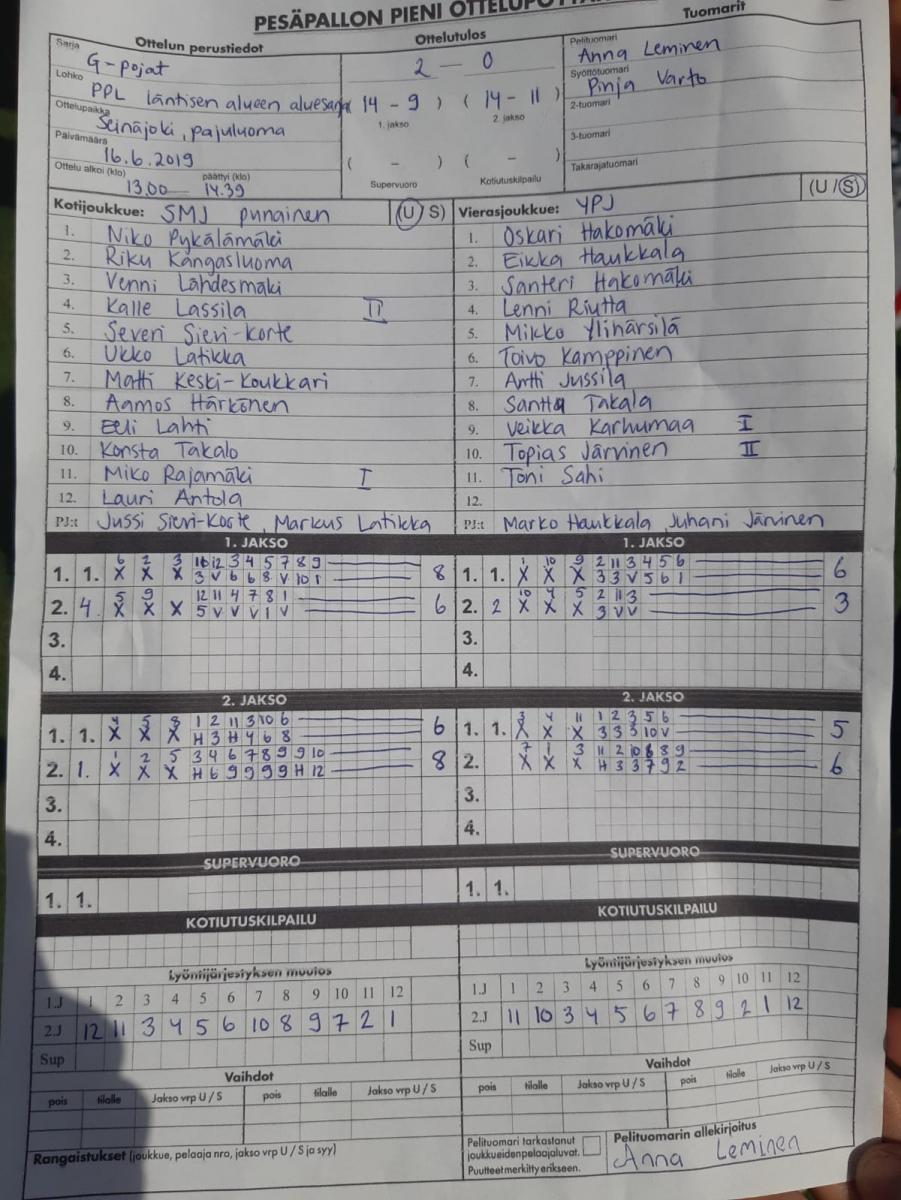 PESÄPALLON PIENI
Ottelun perustiedot
Ottelutulos
Tuomarit
Sarja
G-pojat
Lohko
PPL läntisen alueen aluesarja
Ottelupaikka
Seinäjoki, pajuluoma
Päivämäärä
16.6.2019
Ottelu alkoi (klo) päättyi (klo)
13.00 14.39
2 - 0
( 14 - 9 ) ( 14 - 11 )
1. jakso 2. jakso
( - ) ( - )
Supervuoro Kotiutuskilpailu
Pelituomari
Anna Leminen
Syöttötuomari
Pinja Varto
2-tuomari
3-tuomari
Takarajatuomari
Kotijoukkue: SMJ punainen (U/S)
1. Niko Pykälämäki
2. Riku Kangasluoma
3. Venni Lähdesmäki
4. Kalle Lassila II
5. Severi Sieri-Korte
6. Ukko Latikka
7. Matti Keski-Koukkari
8. Aamos Härkönen
9. Eeli Lahti
10. Konsta Takalo
11. Miko Rajamäki I
12. Lauri Antola
PJ:t Jussi Sieri-Korte, Markus Latikka
Vierasjoukkue: YPJ (U/S)
1. Oskari Hakomäki
2. Eikka Haukkala
3. Santeri Hakomäki
4. Lenni Riutta
5. Mikko Ylihärsilä
6. Toivo Kamppinen
7. Antti Jussila
8. Santtu Takala
9. Veikka Karhumaa I
10. Topias Järvinen II
11. Toni Sahi
12.
PJ:t Marko Haukkala, Juhani Järvinen
1. JAKSO
6 2 3 10 12 3 4 5 7 8 9
1. 1. X X X 3 V 6 6 8 V 10 1 8
5 9 12 11 4 7 8 1
2. 4. X X X 5 V V V 1 V 6
3.
4.
1. JAKSO
1 10 9 2 11 3 4 5 6
1. 1. X X X 3 3 V 5 6 1 6
10 4 5 2 11 3
2. 2 X X X 3 V V 3
3.
4.
2. JAKSO
4 5 8 1 2 11 3 10 6
1. 1. X X X H 3 H 4 6 8 6
1 2 5 3 4 6 7 8 9 9 10
2. 1. X X X H 6 9 9 9 9 H 12 8
3.
4.
2. JAKSO
3 4 11 1 2 3 5 6
1. 1. X X X 3 3 3 10 V 5
7 1 3 11 2 10 6 8 9
2. X X X H 3 3 7 9 2 6
3.
4.
SUPERVUORO
1. 1.
SUPERVUORO
1. 1.
KOTIUTUSKILPAILU
KOTIUTUSKILPAILU
Lyöntijärjestyksen muutos
1.J 1 2 3 4 5 6 7 8 9 10 11 12
2.J 12 11 3 4 5 6 10 8 9 7 2 1
Sup
Lyöntijärjestyksen muutos
1.J 1 2 3 4 5 6 7 8 9 10 11 12
2.J 11 10 3 4 5 6 7 8 9 2 1 12
Sup
Vaihdot
pois tilalle Jakso vrp U / S pois tilalle Jakso vrp U / S
Vaihdot
pois tilalle Jakso vrp U / S pois tilalle Jakso vrp U / S
Rangaistukset (joukkue, pelaaja nro, jakso vrp U / S ja syy)
Pelituomari tarkastanut
joukkueidenpelaajaluvat.
Puutteet merkitty erikseen.
Pelituomarin allekirjoitus
Anna Leminen